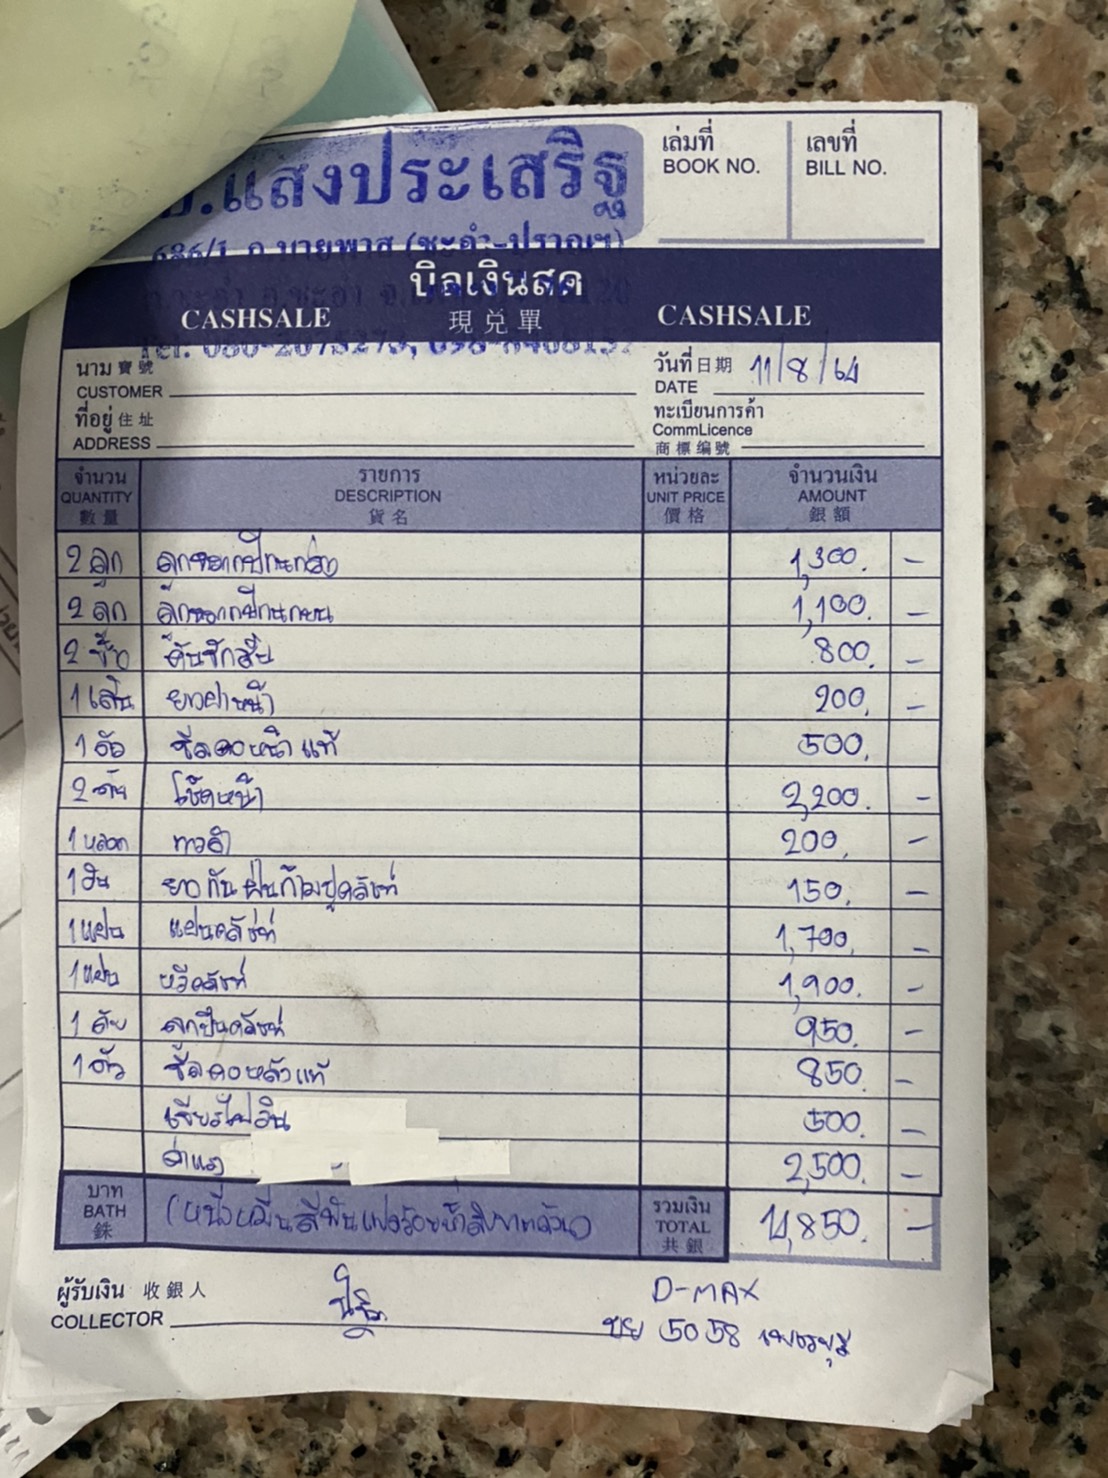 อ.แสงประเสริฐ
เล่มที่ เลขที่
BOOK NO. BILL NO.
686/1 ถ.บายพาส (ชะอำ-ปราณฯ)
บิลเงินสด
CASHSALE 現兌單 CASHSALE
นาม 寶號 วันที่ 日期 11/8/64
CUSTOMER DATE
ที่อยู่ 住址 ทะเบียนการค้า
ADDRESS CommLicence
商標編號
จำนวน รายการ หน่วยละ จำนวนเงิน
QUANTITY DESCRIPTION UNIT PRICE AMOUNT
數量 貨名 價格 銀額
2 ลูก ลูกหมากปีกนกล่าง 1,300. -
2 ลูก ลูกหมากปีกนกบน 1,100. -
2 ชิ้น คันชักสั้น 800. -
1 เส้น ยางฝาหน้า 200. -
1 ตัว ซีลคอหน้าแท้ 500.
2 ต้น โช๊คหน้า 2,200. -
1 หลอด กาวดำ 200. -
1 อัน ยางกันฝุ่นก้ามปูคลัชท์ 150. -
1 แผ่น แผ่นคลัชท์ 1,700. -
1 แผ่น หวีคลัชท์ 1,900. -
1 ตับ ลูกปืนคลัชท์ 950. -
1 ตัว ซีลคอหลังแท้ 850. -
เจียร์ไฟวีล 500. -
ค่าแรง 2,500. -
บาท รวมเงิน
BATH (หนึ่งหมื่นสี่พันแปดร้อยห้าสิบบาทถ้วน) TOTAL 14,850. -
銖 共銀
ผู้รับเงิน 收銀人 D-MAX
COLLECTOR บย 5058 เพชรบุรี